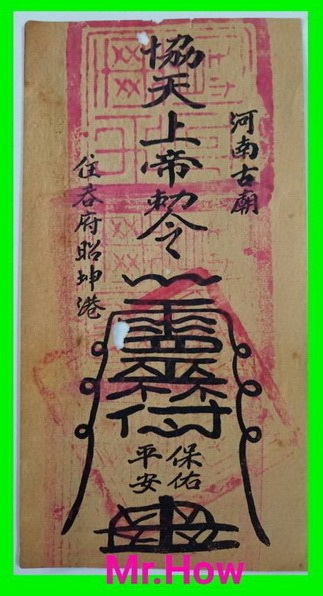 河南古廟
協天上帝勅令
住吞府昭坤港
保佑
平安
Mr.How